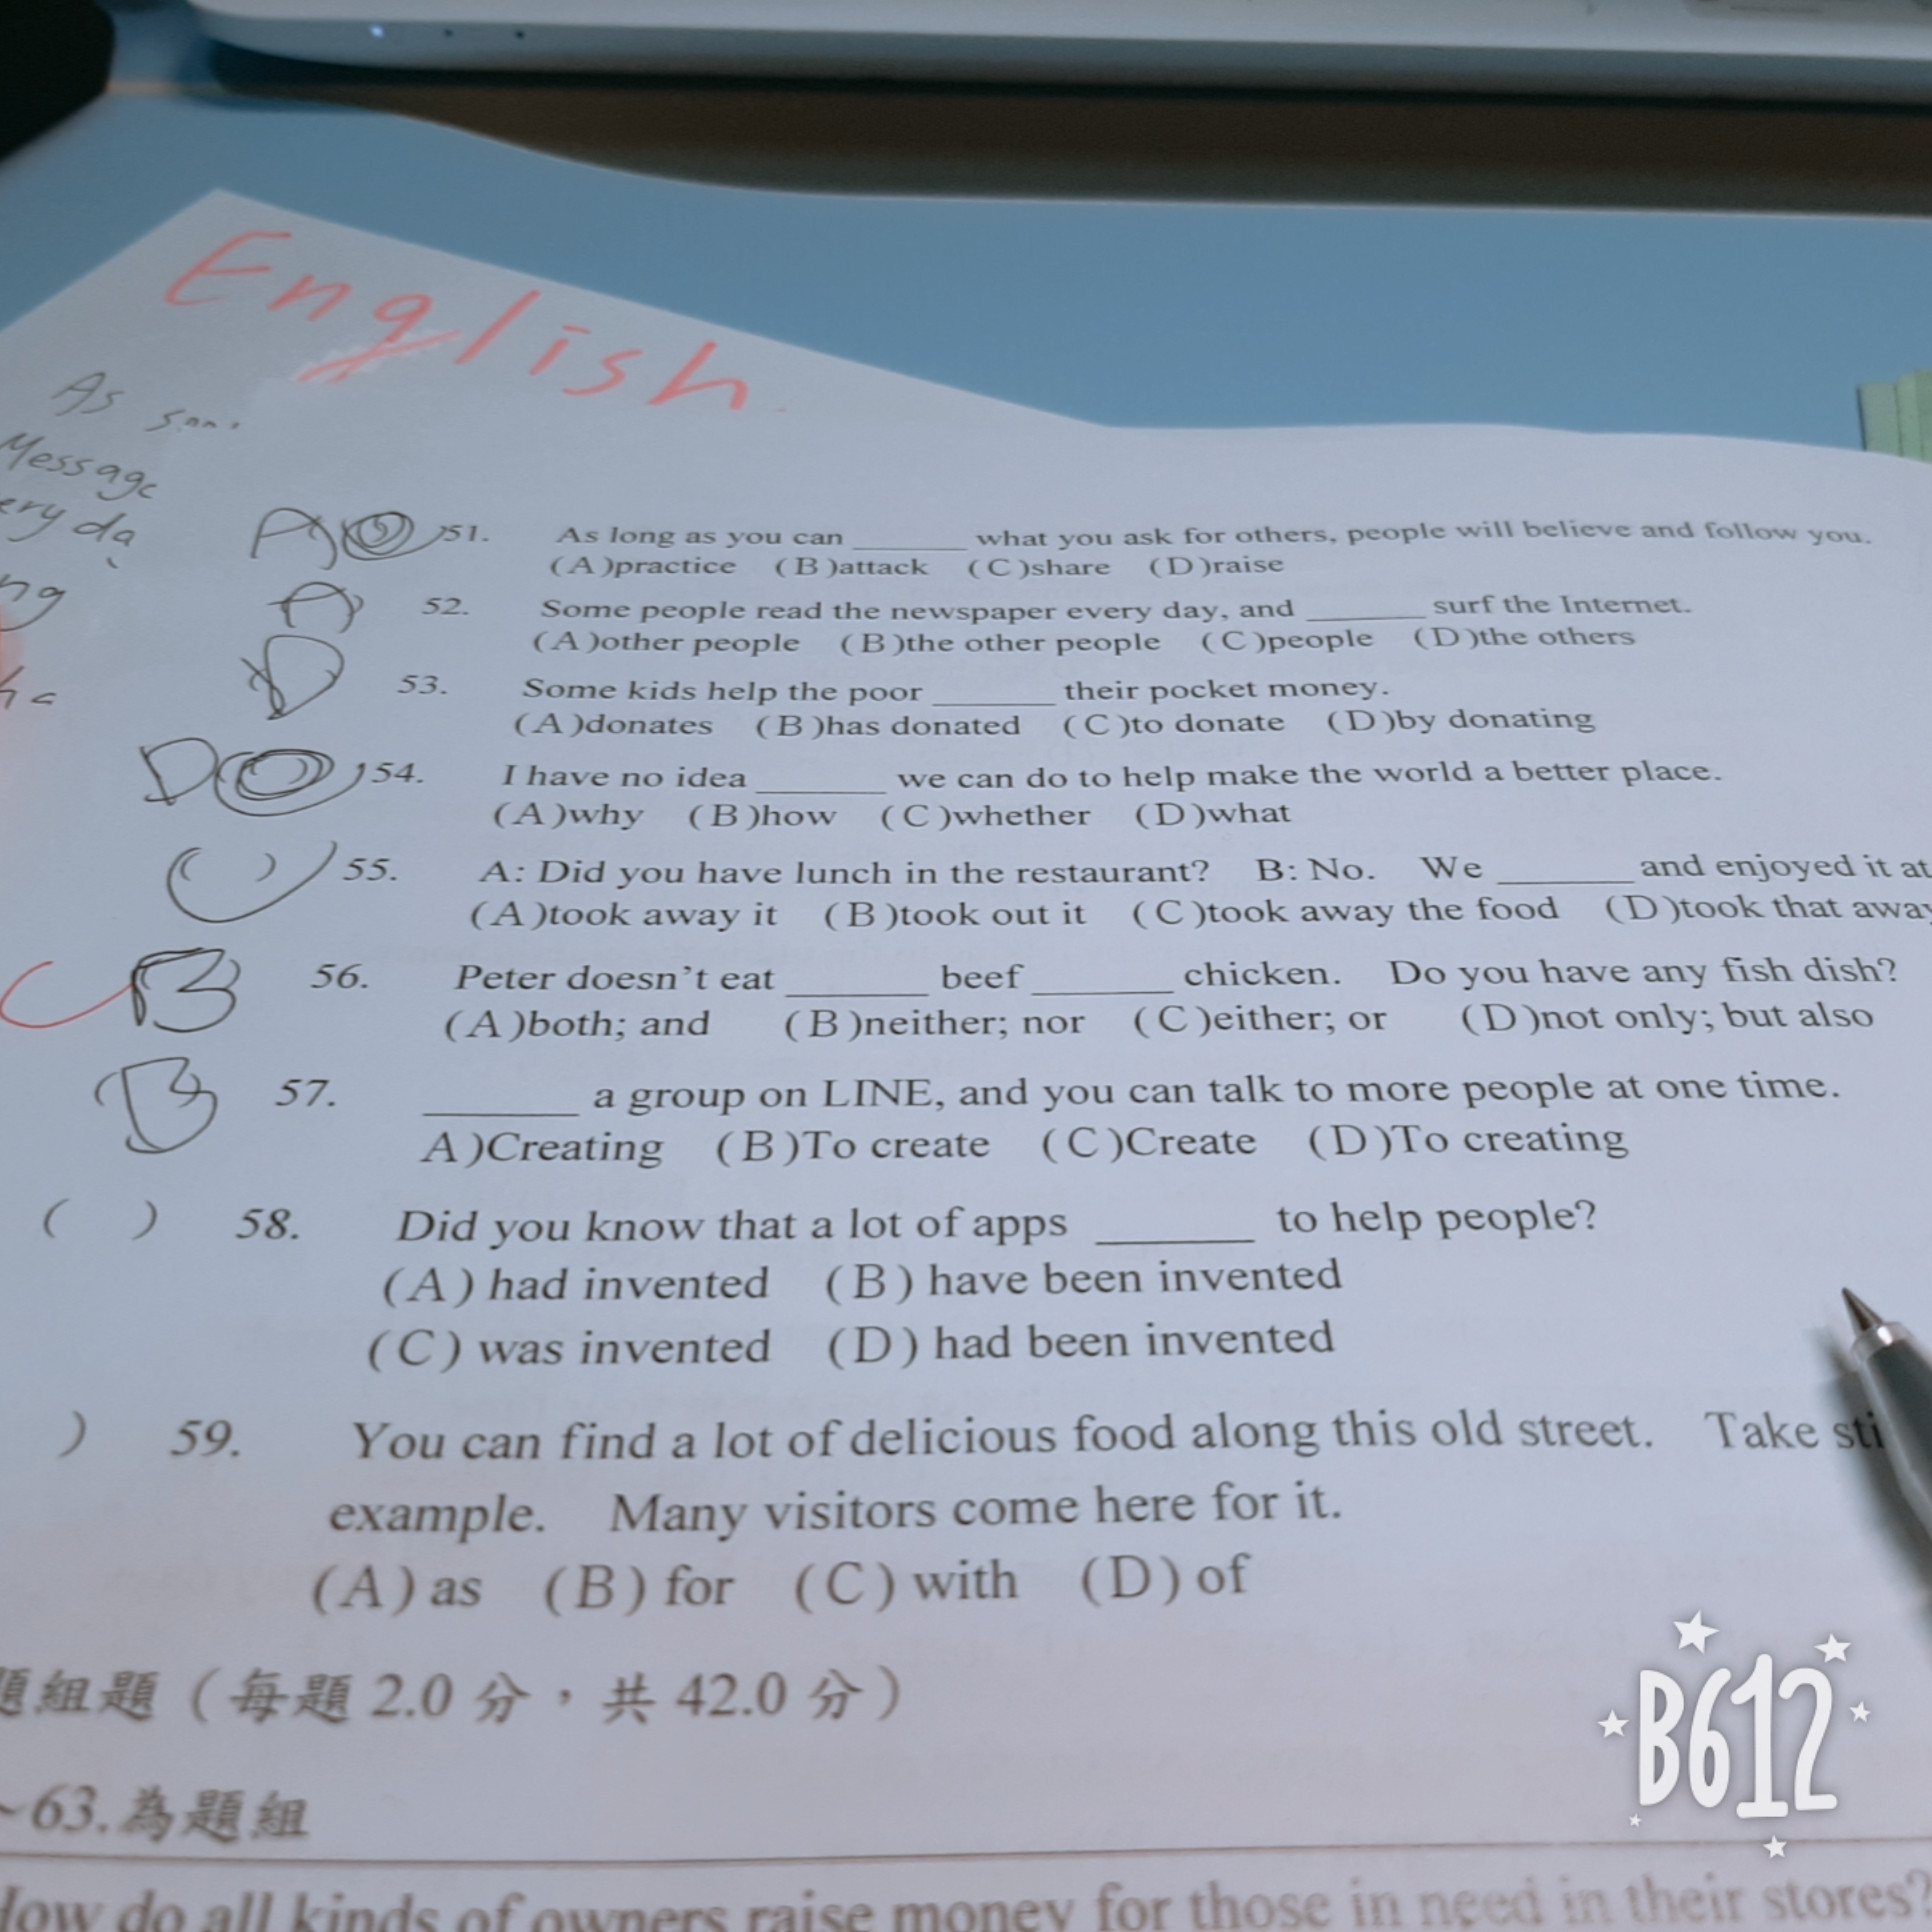 English
As
Message
ery da
ng
A 51. As long as you can ______ what you ask for others, people will believe and follow you.
(A)practice (B)attack (C)share (D)raise
A 52. Some people read the newspaper every day, and ______ surf the Internet.
(A)other people (B)the other people (C)people (D)the others
D 53. Some kids help the poor ______ their pocket money.
(A)donates (B)has donated (C)to donate (D)by donating
D 54. I have no idea ______ we can do to help make the world a better place.
(A)why (B)how (C)whether (D)what
( ) 55. A: Did you have lunch in the restaurant? B: No. We ______ and enjoyed it at
(A)took away it (B)took out it (C)took away the food (D)took that away
B 56. Peter doesn't eat ______ beef ______ chicken. Do you have any fish dish?
(A)both; and (B)neither; nor (C)either; or (D)not only; but also
B 57. ______ a group on LINE, and you can talk to more people at one time.
A)Creating (B)To create (C)Create (D)To creating
( ) 58. Did you know that a lot of apps ______ to help people?
(A) had invented (B) have been invented
(C) was invented (D) had been invented
) 59. You can find a lot of delicious food along this old street. Take sti
example. Many visitors come here for it.
(A) as (B) for (C) with (D) of
題組題（每題 2.0 分，共 42.0 分）
~63.為題組
How do all kinds of owners raise money for those in need in their stores?
B612